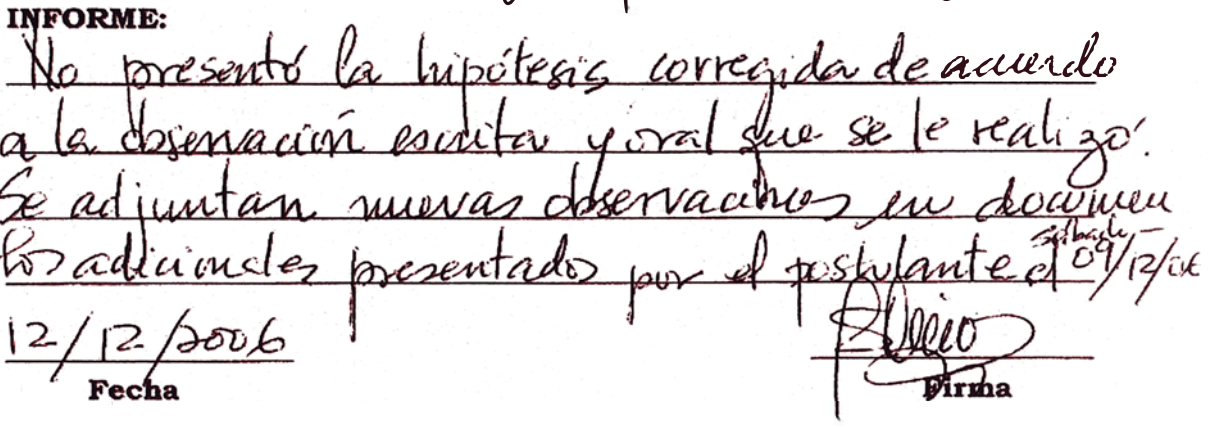 INFORME:
No presentó la hipótesis corregida de acuerdo
a la observación escrita y oral que se le realizó.
Se adjuntan nuevas observaciones en documen
tos adicionales presentados por el postulante el sábado 09/12/06
12/12/2006
Fecha
Firma